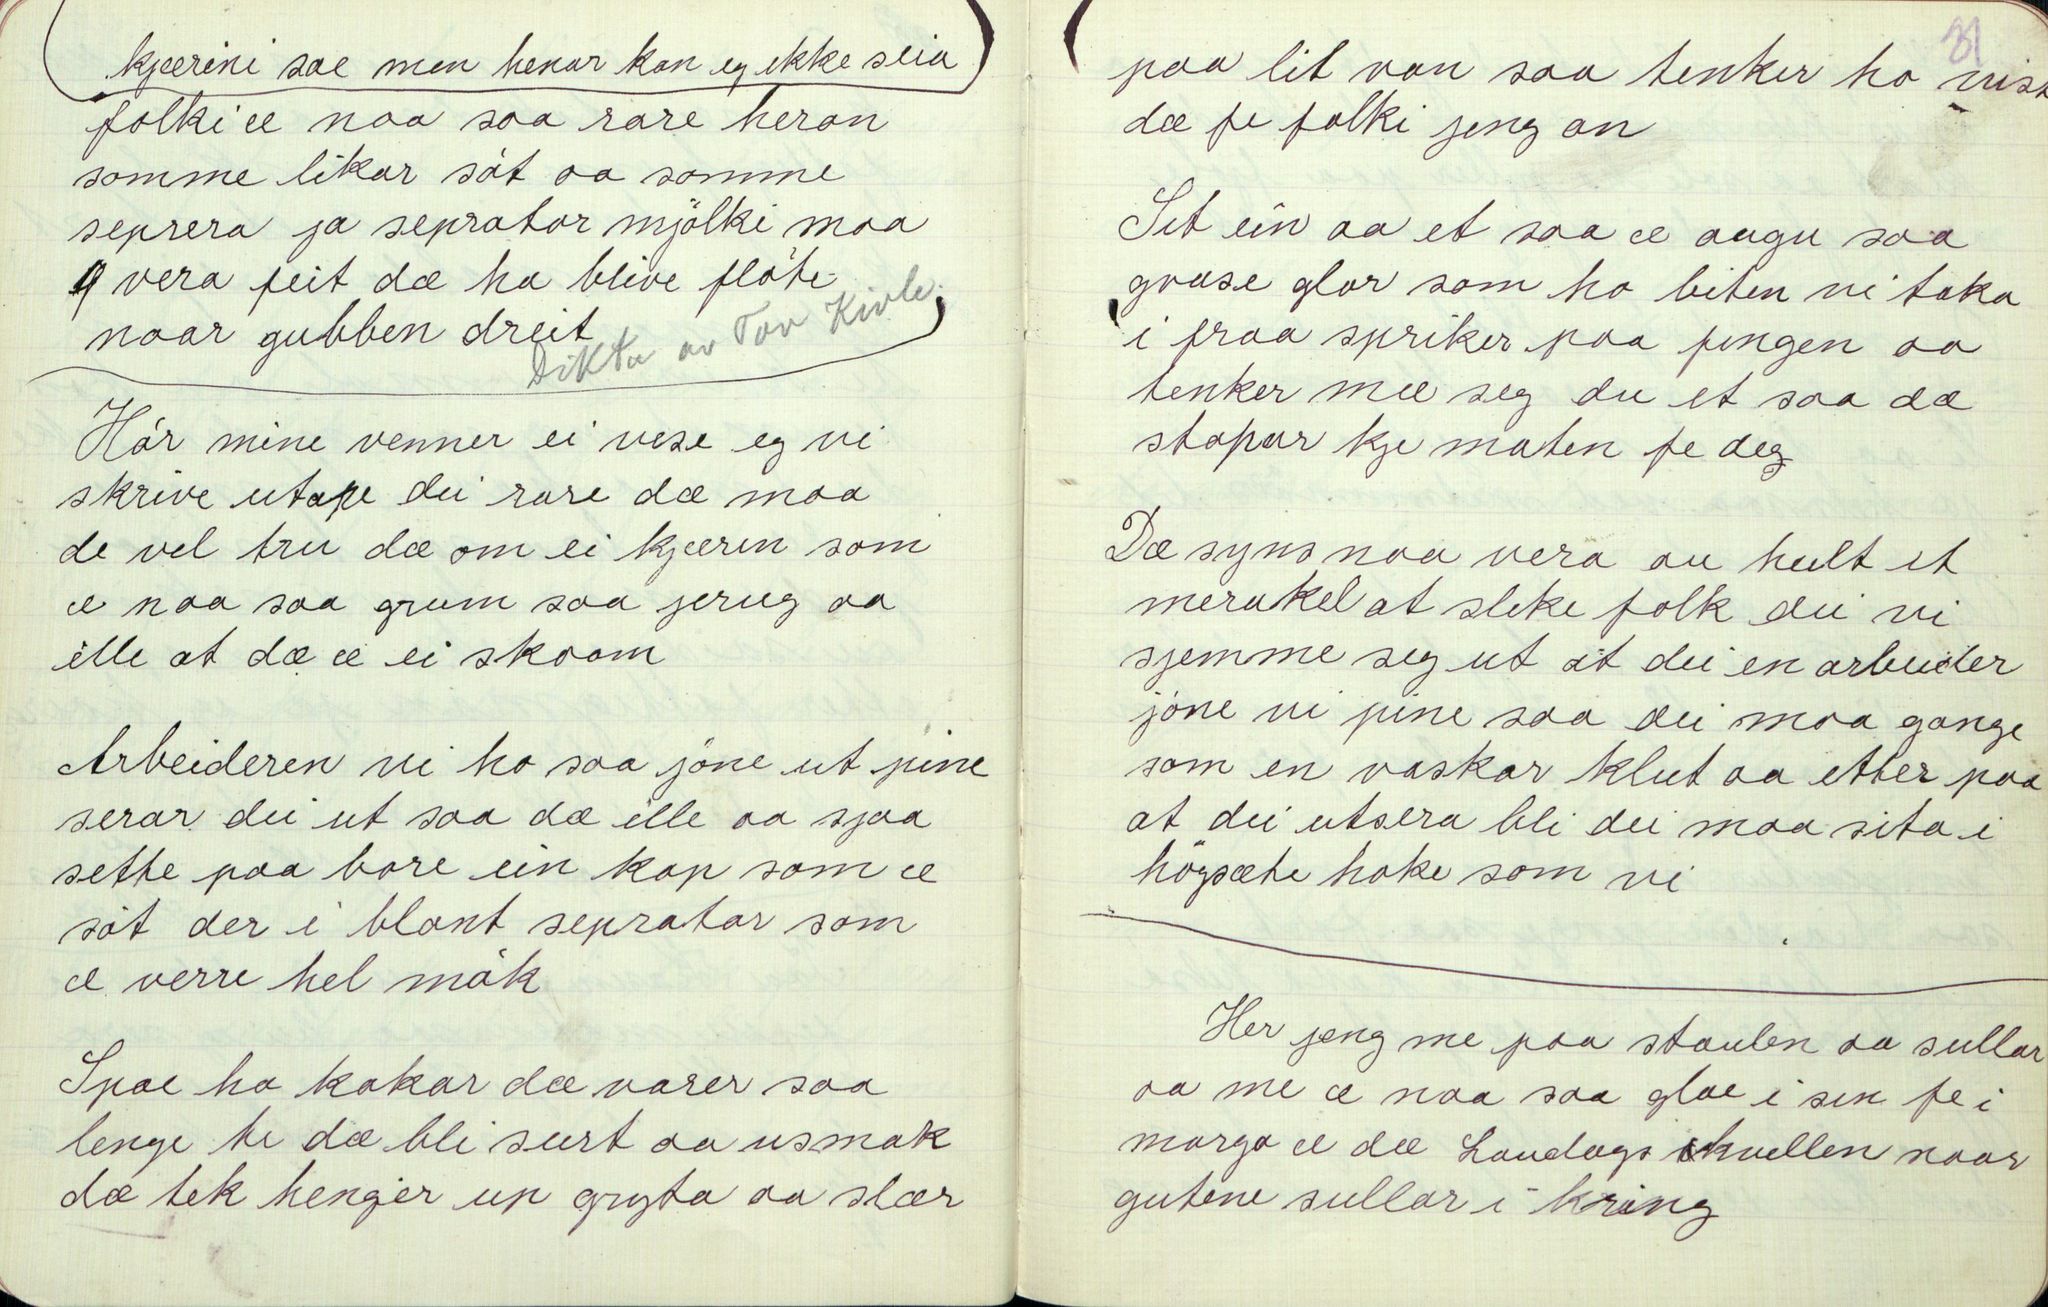 kjærini sae men henar kan eg ikke seia
folki æ noa saa rare heran
somme likar söt aa somme
seprera ja seprator mjölki maa
vera feit dæ ha blive flöte
naar gubben dreit
Dikta av Tov Kivle.
Hör mine venner ei vise eg vi
skrive utape dei rare dæ maa
de vel tru dæ om ei kjæren som
æ naa saa grum saa jerug aa
ille at dæ æ ei skaam
Arbeideren vi ho saa jöne ut pine
serar dei ut saa dæ ille aa sjaa
sette paa bore ein kop som æ
söt der i blant seprator som
æ verre hel mök
Spae ho kokar dæ varer saa
lenge te dæ bli surt aa usmak
dæ tek henger up gryta aa slær
81
paa lit van saa tenker ho vist
dæ fe folki jeng an
Set ein aa et saa æ augu saa
gvase glor som ho biten vi taka
i fraa spriker paa fingen aa
tenker mæ seg du et saa dæ
stopar kje maten fe deg
Dæ syns naa vera au heilt et
merakel at sleke folk dei vi
sjemme seg ut at dei en arbeider
jöne vi pine saa dei maa gange
som en vaskar klut aa etter paa
at dei utsera bli dei maa sita i
högsæte hoke som vi
Her jeng me paa staulen aa sullar
aa me æ naa saa glae i sin fe i
morgo æ dæ Laudags kvellen naar
gutene sullar i kring